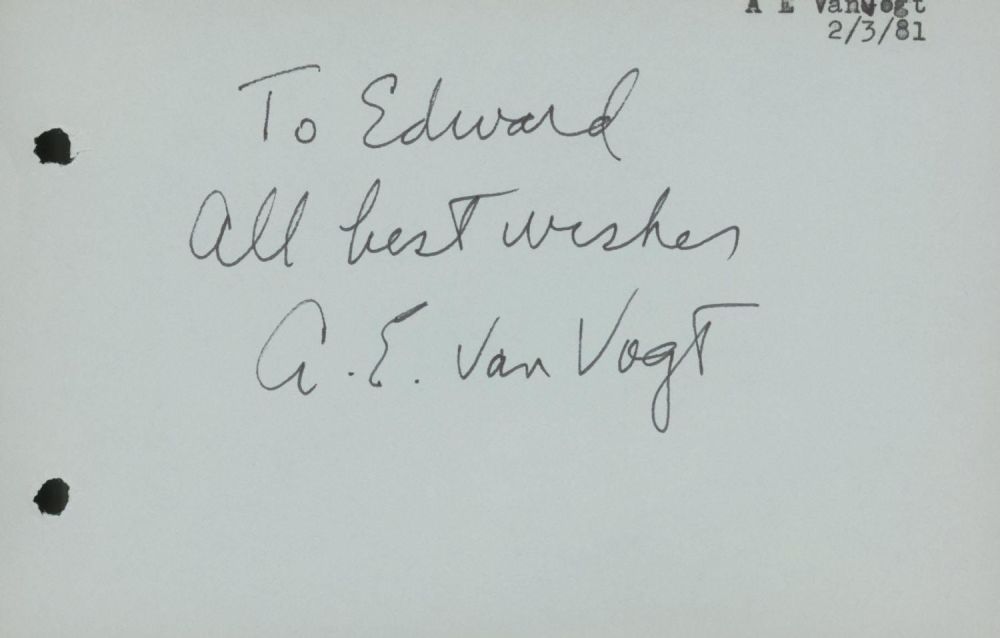 A E VanVogt
2/3/81
To Edward
All best wishes
A. E. Van Vogt